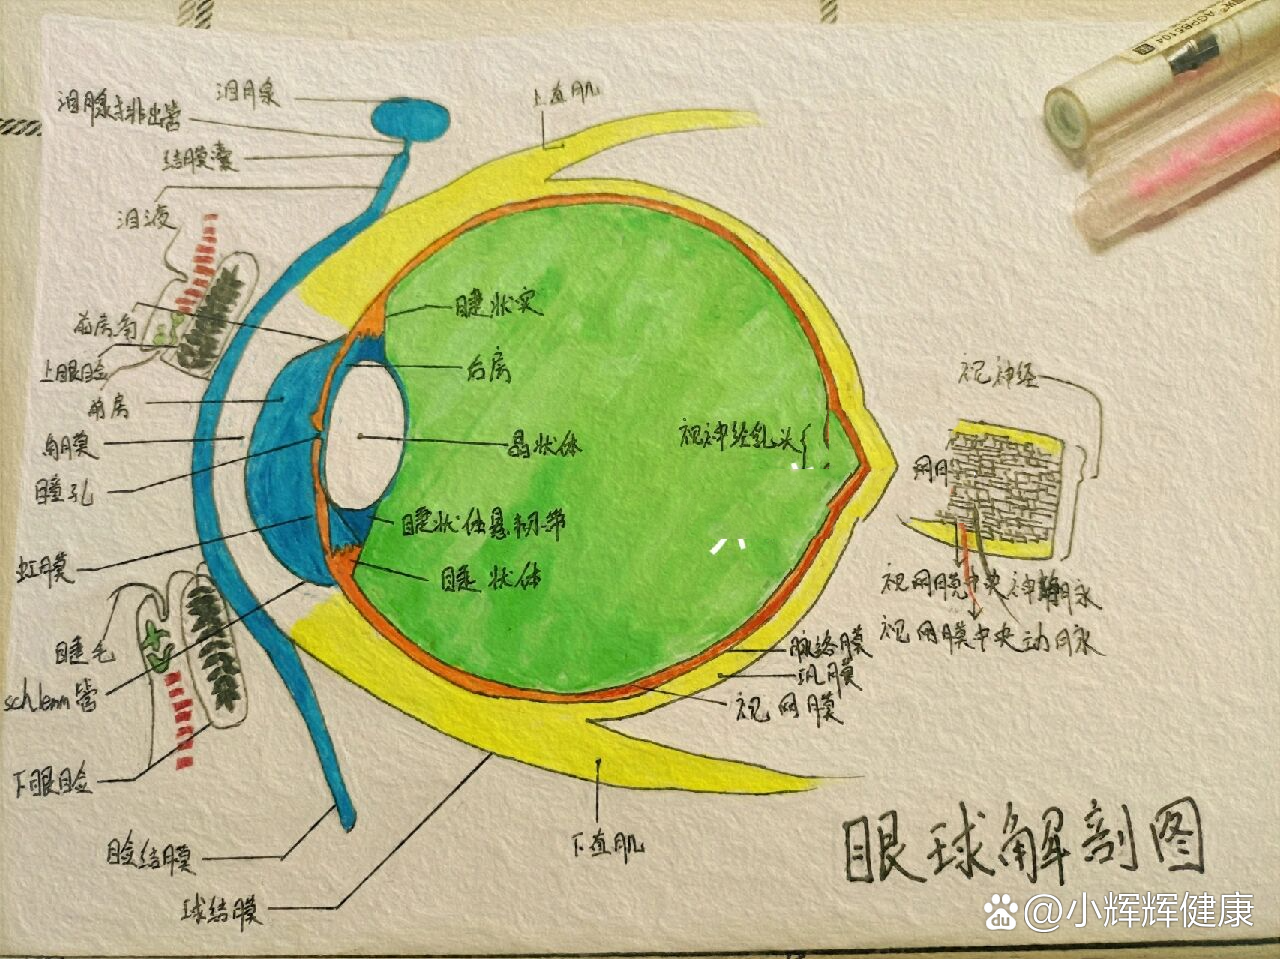 泪腺
泪腺排出管
结膜囊
泪液
上直肌
前房角
上眼睑
前房
角膜
瞳孔
虹膜
睫毛
schlemm管
下眼睑
睑结膜
球结膜
睫状突
后房
晶状体
睫状体悬韧带
睫状体
视神经乳头
视神经
视网膜中央动脉
脉络膜
巩膜
视网膜
下直肌
眼球解剖图
du @小辉辉健康